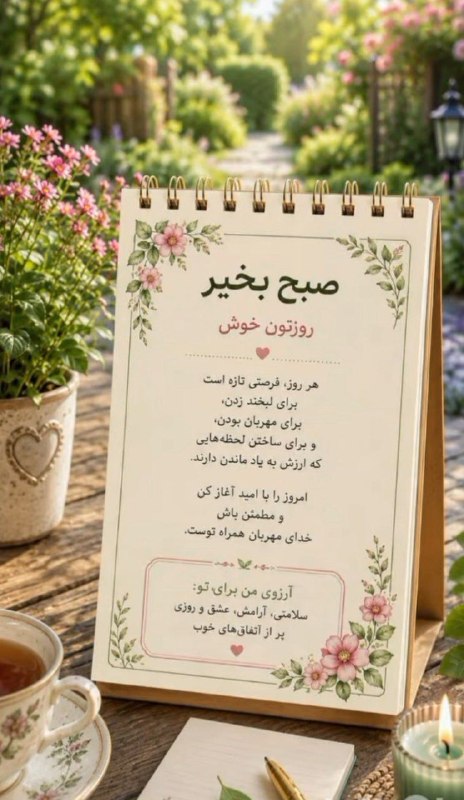 صبح بخیر
روزتون خوش
هر روز، فرصتی تازه است
برای لبخند زدن،
برای مهربان بودن،
و برای ساختن لحظه‌هایی
که ارزش به یاد ماندن دارند.
امروز را با امید آغاز کن
و مطمئن باش
خدای مهربان همراه توست.
آرزوی من برای تو:
سلامتی، آرامش، عشق و روزی
پر از اتفاق‌های خوب